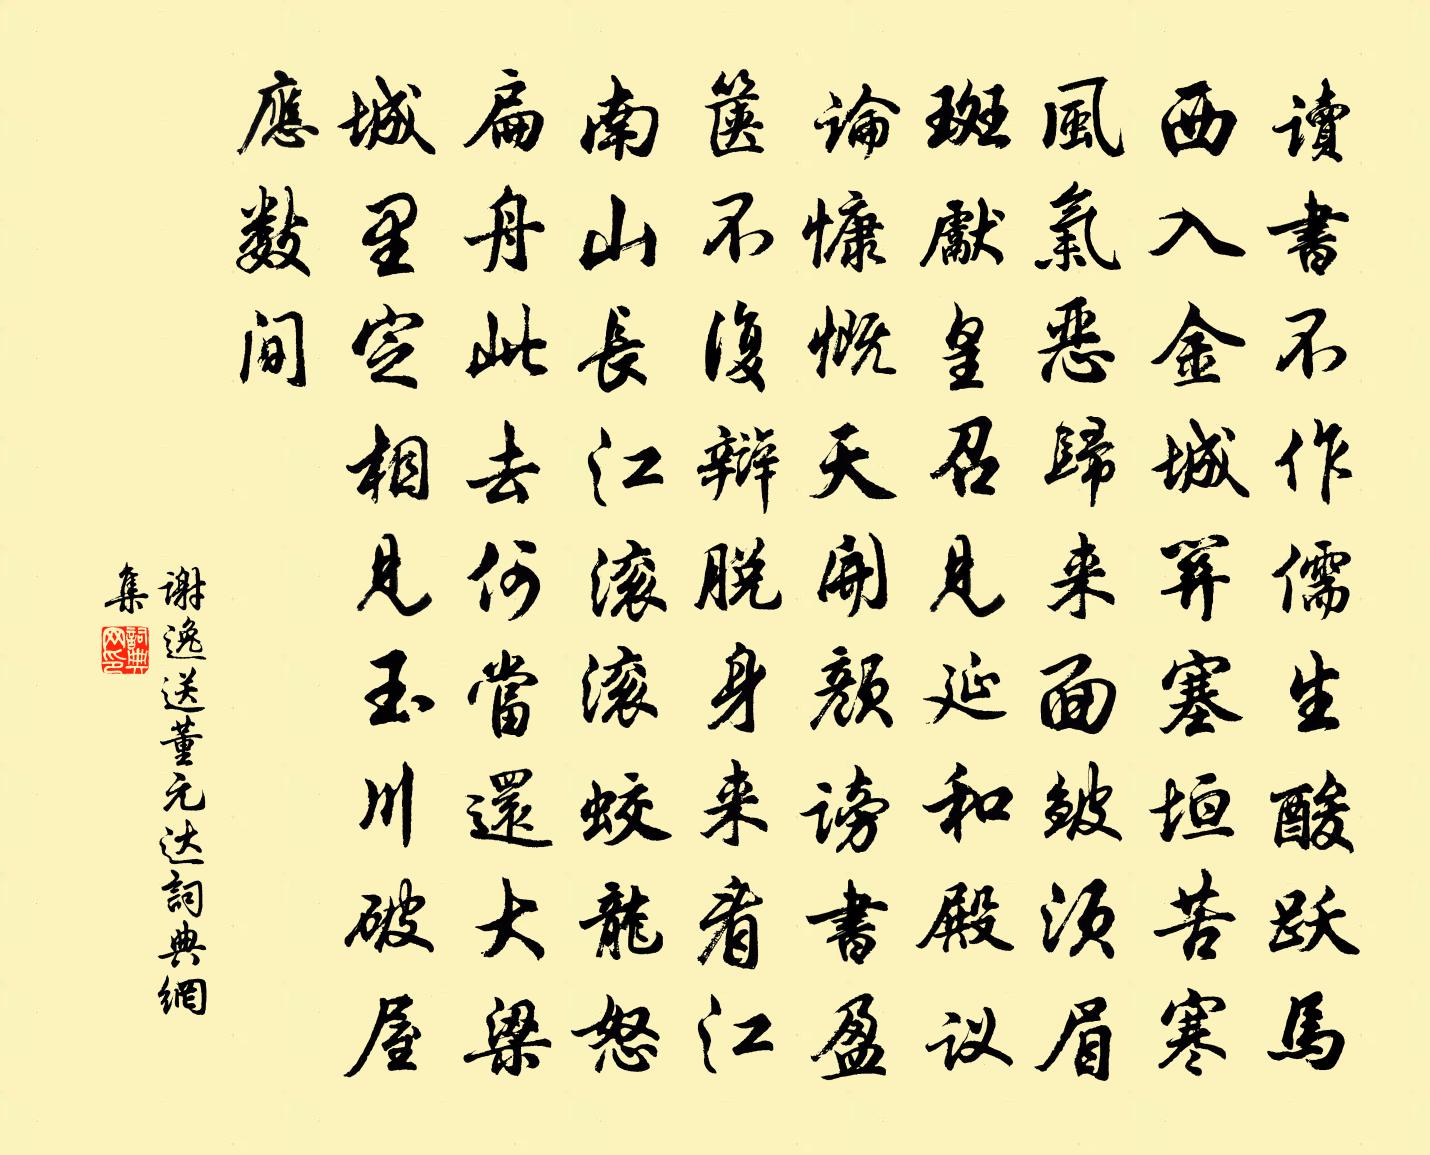 讀書不作儒生酸跃馬
西入金城関塞垣苦寒
風氣惡歸来面皺須眉
斑獻皇召見延和殿议
論慷慨天開顔謗書盈
篋不復辯脱身来看江
南山長江滚滚蛟龍怒
扁舟此去何當還大梁
城里定相見玉川破屋
應数间
謝逸送董元达詞典網
集
詞典
网印